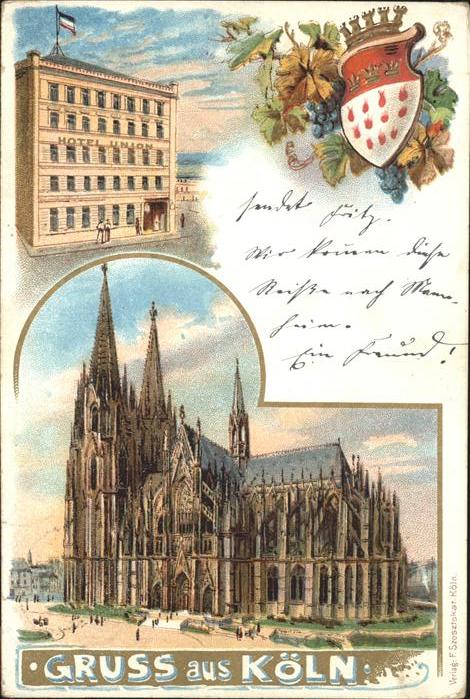 HOTEL UNION
sendet Fritz.
Wir kommen diese
nach Mann-
heim.
Ein Freund!
Verlag: F. Szesztokat, Köln.
GRUSS aus KÖLN